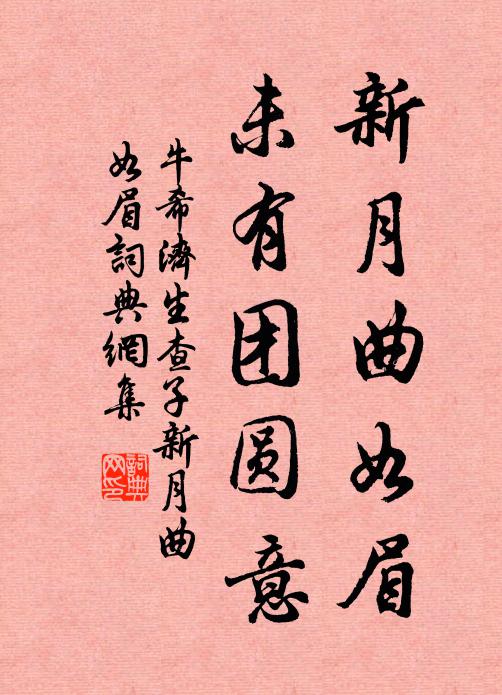 新月曲如眉
未有团圆意
牛希濟生查子新月曲
如眉詞典網集
詞典网印